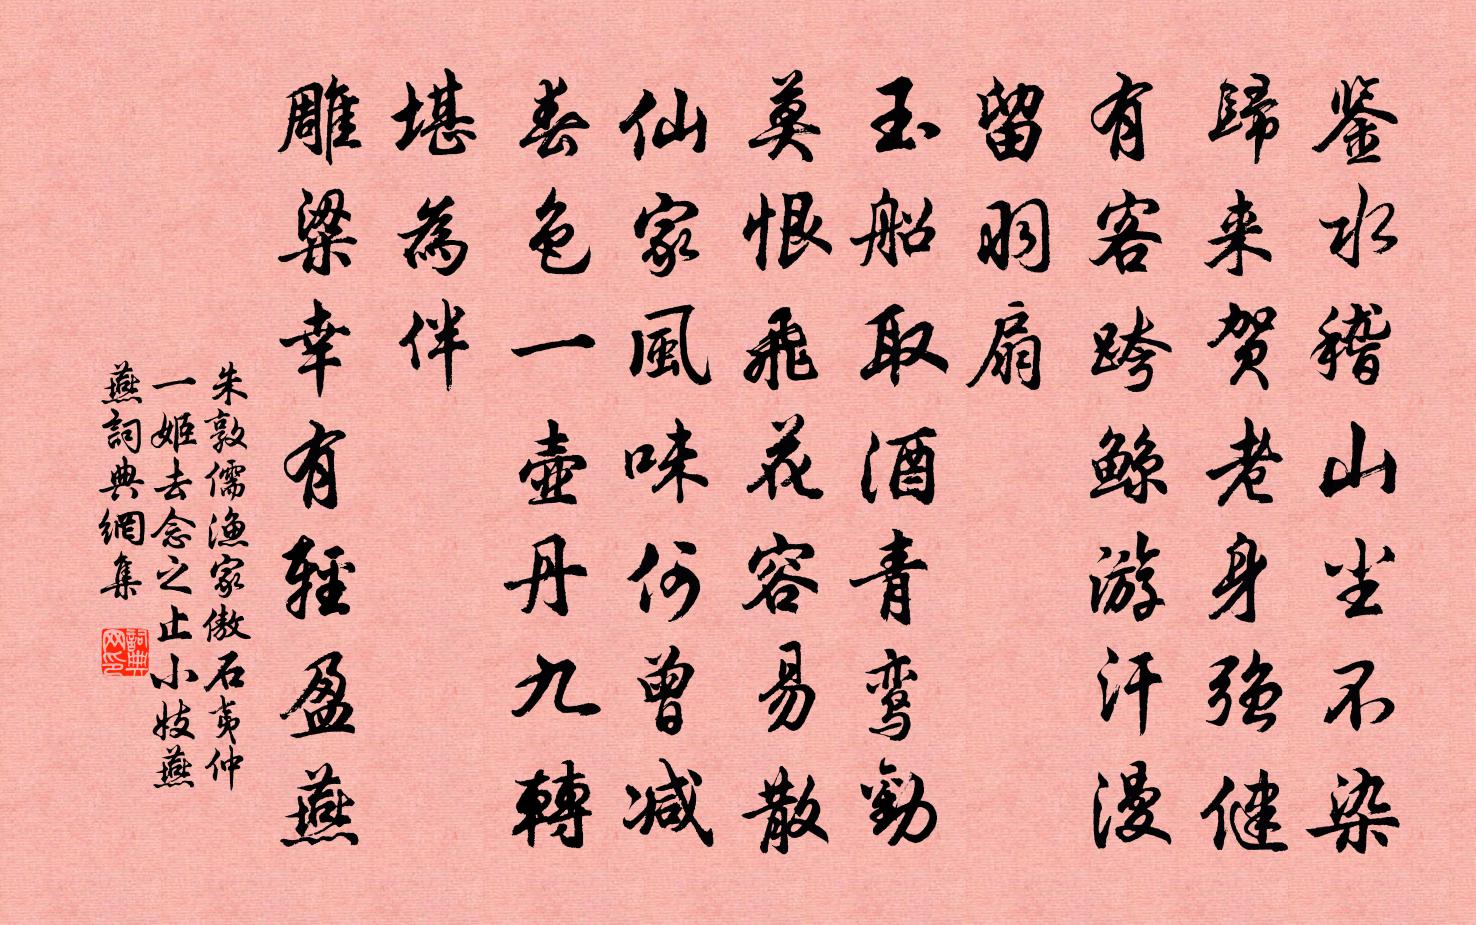 鉴水稽山尘不染
歸来贺老身强健
有客跨鲸游汗漫
留羽扇
玉船取酒青鸾勸
莫恨飛花容易散
仙家風味何曾减
春色一壶丹九轉
堪為伴
雕梁幸有輕盈燕
朱敦儒漁家傲石夷仲
一姬去念之止小妓燕
燕詞典網集
詞典网印